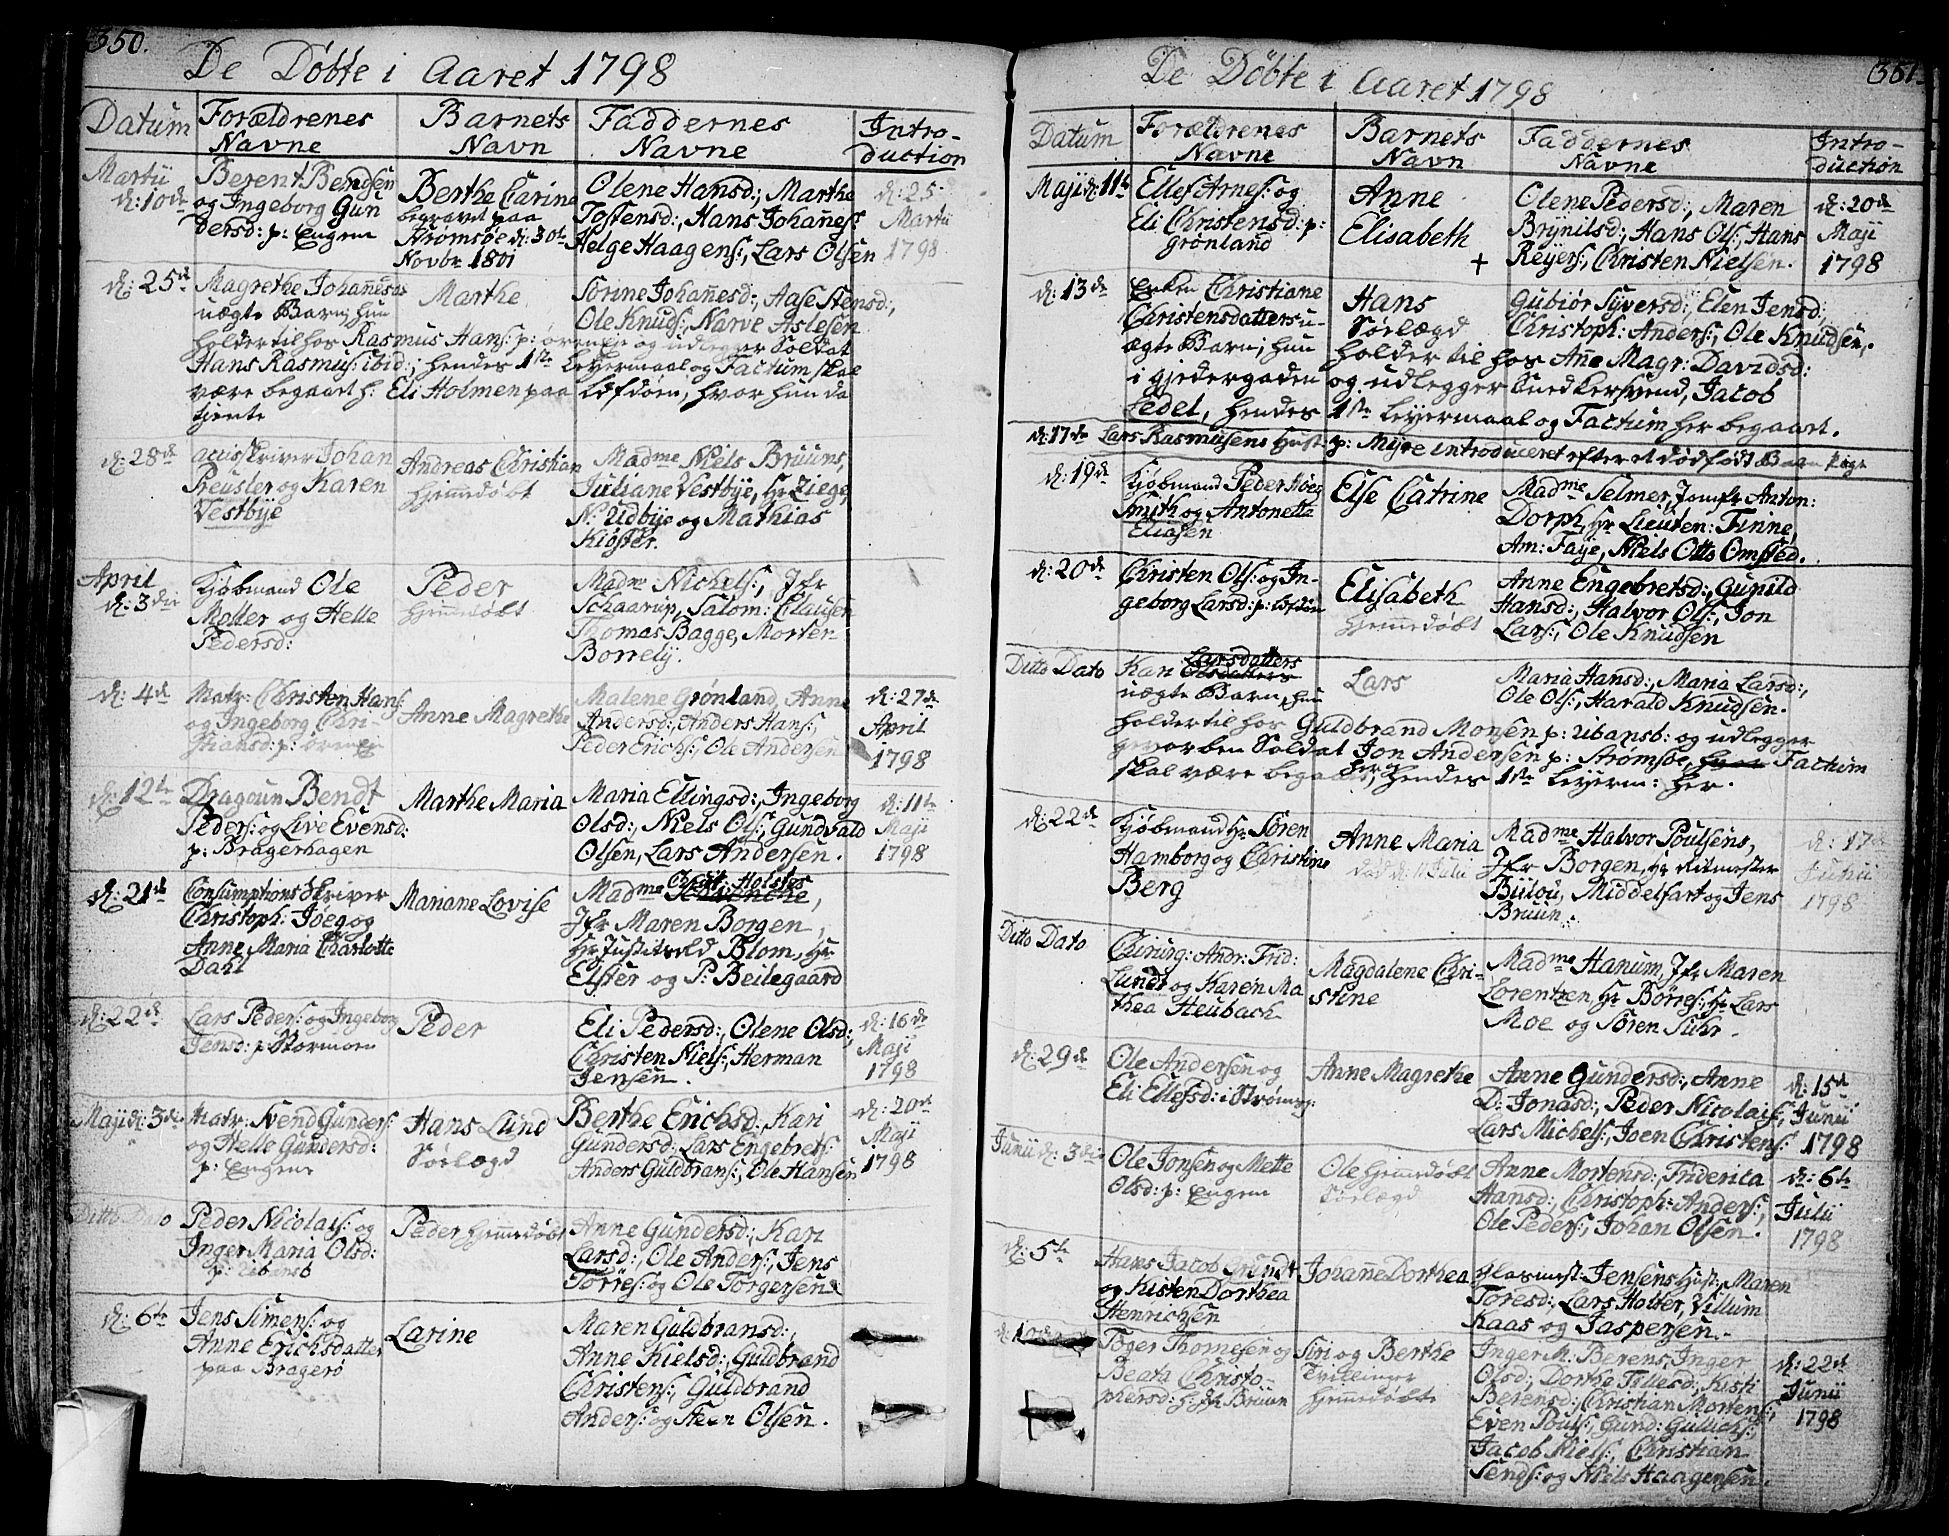 350.
De Döbte i Aaret 1798
Datum
Forældrenes Navne
Barnets Navn
Faddernes Navne
Introduction
Martii d: 10de
Berent Bendsen
og Ingeborg Gun
dersd: p: Engene
Berthe Carine
begravet paa
Strømsøe d: 30te
Novbr 1801
Olene Hansd:, Marthe
Tostensd:, Hans Johañes:
Helge Haagens:, Lars Olsen
d: 25
Martii
1798
d: 25de
Magrethe Johañesd:
uægte Barn; hun
Marthe
Sörine Johañesd:, Aase Stensd:,
Ole Knuds:, Narve Aslesen
holder til hos Rasmus Hans: p: ørenje og udlegger Soldat
Hans Rasmus: ibid:; hendes 1ste Leyermaal og Factum skal
være begaaet h: Eli Holmen paa Løfdøen, hvor hun da
tjente
d: 28de
Accisskriver Johan
Preusler og Karen
Vestbÿe
Andreas Christian
hjemmedøbt
Madme Niels Bruuns,
Juliane Vestbÿe, Hr Ziege,
N: Udbÿe og Mathias
Kiøster.
April
d: 3die
Kjøbmand Ole
Møller og Helle
Pedersd:
Peder
hjemmedøbt
Madme Nichels:, Jfr
Schaarup, Salom: Clausen
Thomas Bagge, Morten
Borrely.
d: 4de
Matr: Christen Hans:
og Ingeborg Chri-
stiansd: p: ørenje
Anne Magrethe
Malene Grønland, Anne
Andersd:, Anders Hans:,
Peder Erichs:, Ole Andersen
d: 27de
April
1798
d: 12te
Dragoun Bendt
Peders: og Live Evensd:
p: Bragerhagen
Marthe Maria
Maria Ellingsd:, Ingeborg
Olsd:, Niels Ols:, Gundvald
Olsen, Lars Andersen.
d: 11te
Maji
1798
d: 21de
Consumptions Skriver
Christoph: Jöeg og
Anne Maria Charlotte
Dahl
Mariane Lovise
Madme Chrit: Holstes,
Jfr Maren Borgen,
Hr Justitsrd Blom, Hr
Elster og P: Beilegaard
d: 22de
Lars Peders: og Ingeborg
Jensd: p: Stormoen
Peder
Eli Pedersd:, Olene Olsd:,
Christen Niels:, Herman
Jensen.
d: 16de
Maji
1798
Maji d: 3die
Matr: Svend Gunders:
og Helle Gundersd:
p: Engene
Hans Lund
Söelægd
Berthe Erichsd:, Kari
Gundersd:, Lars Engebrets:
Anders Guldbrans:, Ole Hansen
d: 20de
Maji
1798
Ditto Dato
Peder Nicolais: og
Inger Maria Olsd:
p: Ubansb
Peder hjemmedøbt
Anne Gundersd:, Kari
Larsd:, Ole Anders:, Jens
Törres: og Ole Torgersen
d: 6te
Jens Simens: og
Anne Erichsdatter
paa Bragerö
Larine
Maren Guldbransd:,
Anne Nielsd:, Guldbrand
Christens:, Guldbrand
Anders: og Steen Olsen.
351.
De Döbte i Aaret 1798
Datum
Forældrenes Navne
Barnets Navn
Faddernes Navne
Introduction
Maji d: 11te
Ellef Arnes: og
Eli Christensd: p:
grönland
Anne
Elisabeth
+
Olene Pedersd:, Maren
Brÿnilsd:, Hans Ols:, Hans
Reÿers:, Christen Nielsen.
d: 20de
Maji
1798
d: 13de
Enken Christiane
Christensdatters u-
ægte Barn; hun
Hans
Söelægd
Gubiør Sÿversd:, Elen Jensd:
Christoph: Anders:, Ole Knudsen.
holder til hos Añe Magr: Davidsd:
i gjedergaden og udlegger Snedkersvend, Jacob
Fedel, hendes 1ste Leyermaal og Factum her begaaet.
d: 17de Lars Rasmusens Hust: p: Mÿre introduceret efter et dødfødt Barn Pige
d: 19de
Kjøbmand Peder Höer
Smith og Antonette
Eliasen
Else Catrine
Madme Selmer, Jomfr Anton:
Dorph, Hr Lieuten: Finne
Am: Faÿe, Niels Otto Omsted.
d: 20de
Christen Ols: og In-
geborg Larsd: p: Löfdøen
Elisabeth
hjemmedøbt
Anne Engebretsd:, Gunild
Hansd:, Halvor Ols:, Jon
Lars:, Ole Knudsen
Ditto Dato
Kari Larsdatters
uægte Barn, hun
Lars
Maria Hansd:, Maria Larsd:,
Ole Ols:, Harald Knudsen.
holder til hos Guldbrand Monsen p: Ubansb: og udlegger
gevorben Soldat Jon Andersen p: Strømsøe, Factum
skal være begaaet her, hendes 1ste Leyerm: her.
d: 22de
Kjøbmand Hr Sören
Hamborg og Christine
Berg
Anne Maria
död d: 11 Julii
Madme Halvor Poulsens,
Jfr Borgen, Hr Ritmester
Bülou, Middelfart og Jens
Bruun.
d: 17de
Junii
1798
Ditto Dato
Chirurg: Andr: Frid:
Lundt og Karen Ma
thea Heuback
Magdalene Chri-
stine
Madme Hanum, Jfr Maren
Lorentzen, Hr Börres:, Hr Lars
Moe og Sören Suhr.
d: 29de
Ole Andersen og
Eli Ellefsd: i Strömsg:
Anne Magrethe
Anne Gundersd:, Anne
D: Jonasd:, Peder Nicolais:,
Lars Michels:, Joen Christens:
d: 15de
Junii
1798
Junii d: 3die
Ole Jonsen og Mette
Olsd: p: Engen
Ole hjemmedøbt
Söelægd
Anne Mortensd:, Friderica
Hansd:, Christoph: Anders:,
Ole Peders:, Johan Olsen.
d: 6te
Julii
1798
d: 5te
Hans Jacob Grundt
og Kisten Dorthea
Henrichsen
Johañe Dorthea
Glasmest: Jensens Hust:, Maren
Toresd:, Lars Holter, Villum
Kaas og Jaspersen.
Toger Thomesen og
Beata Christo-
phersd: h: Jfr Bruun
Siri og Berthe
Tvillinger
hjemmedøbte
Inger M: Berens, Inger
Olsd:, Dorthe Tollesd:, Kisti
Berensd:, Christian Mortens:,
Even Pouls:, Gund: Gullichs:,
Jacob Niels:, Christian
Svends: og Niels Haagensen.
d: 22de
Junii
1798